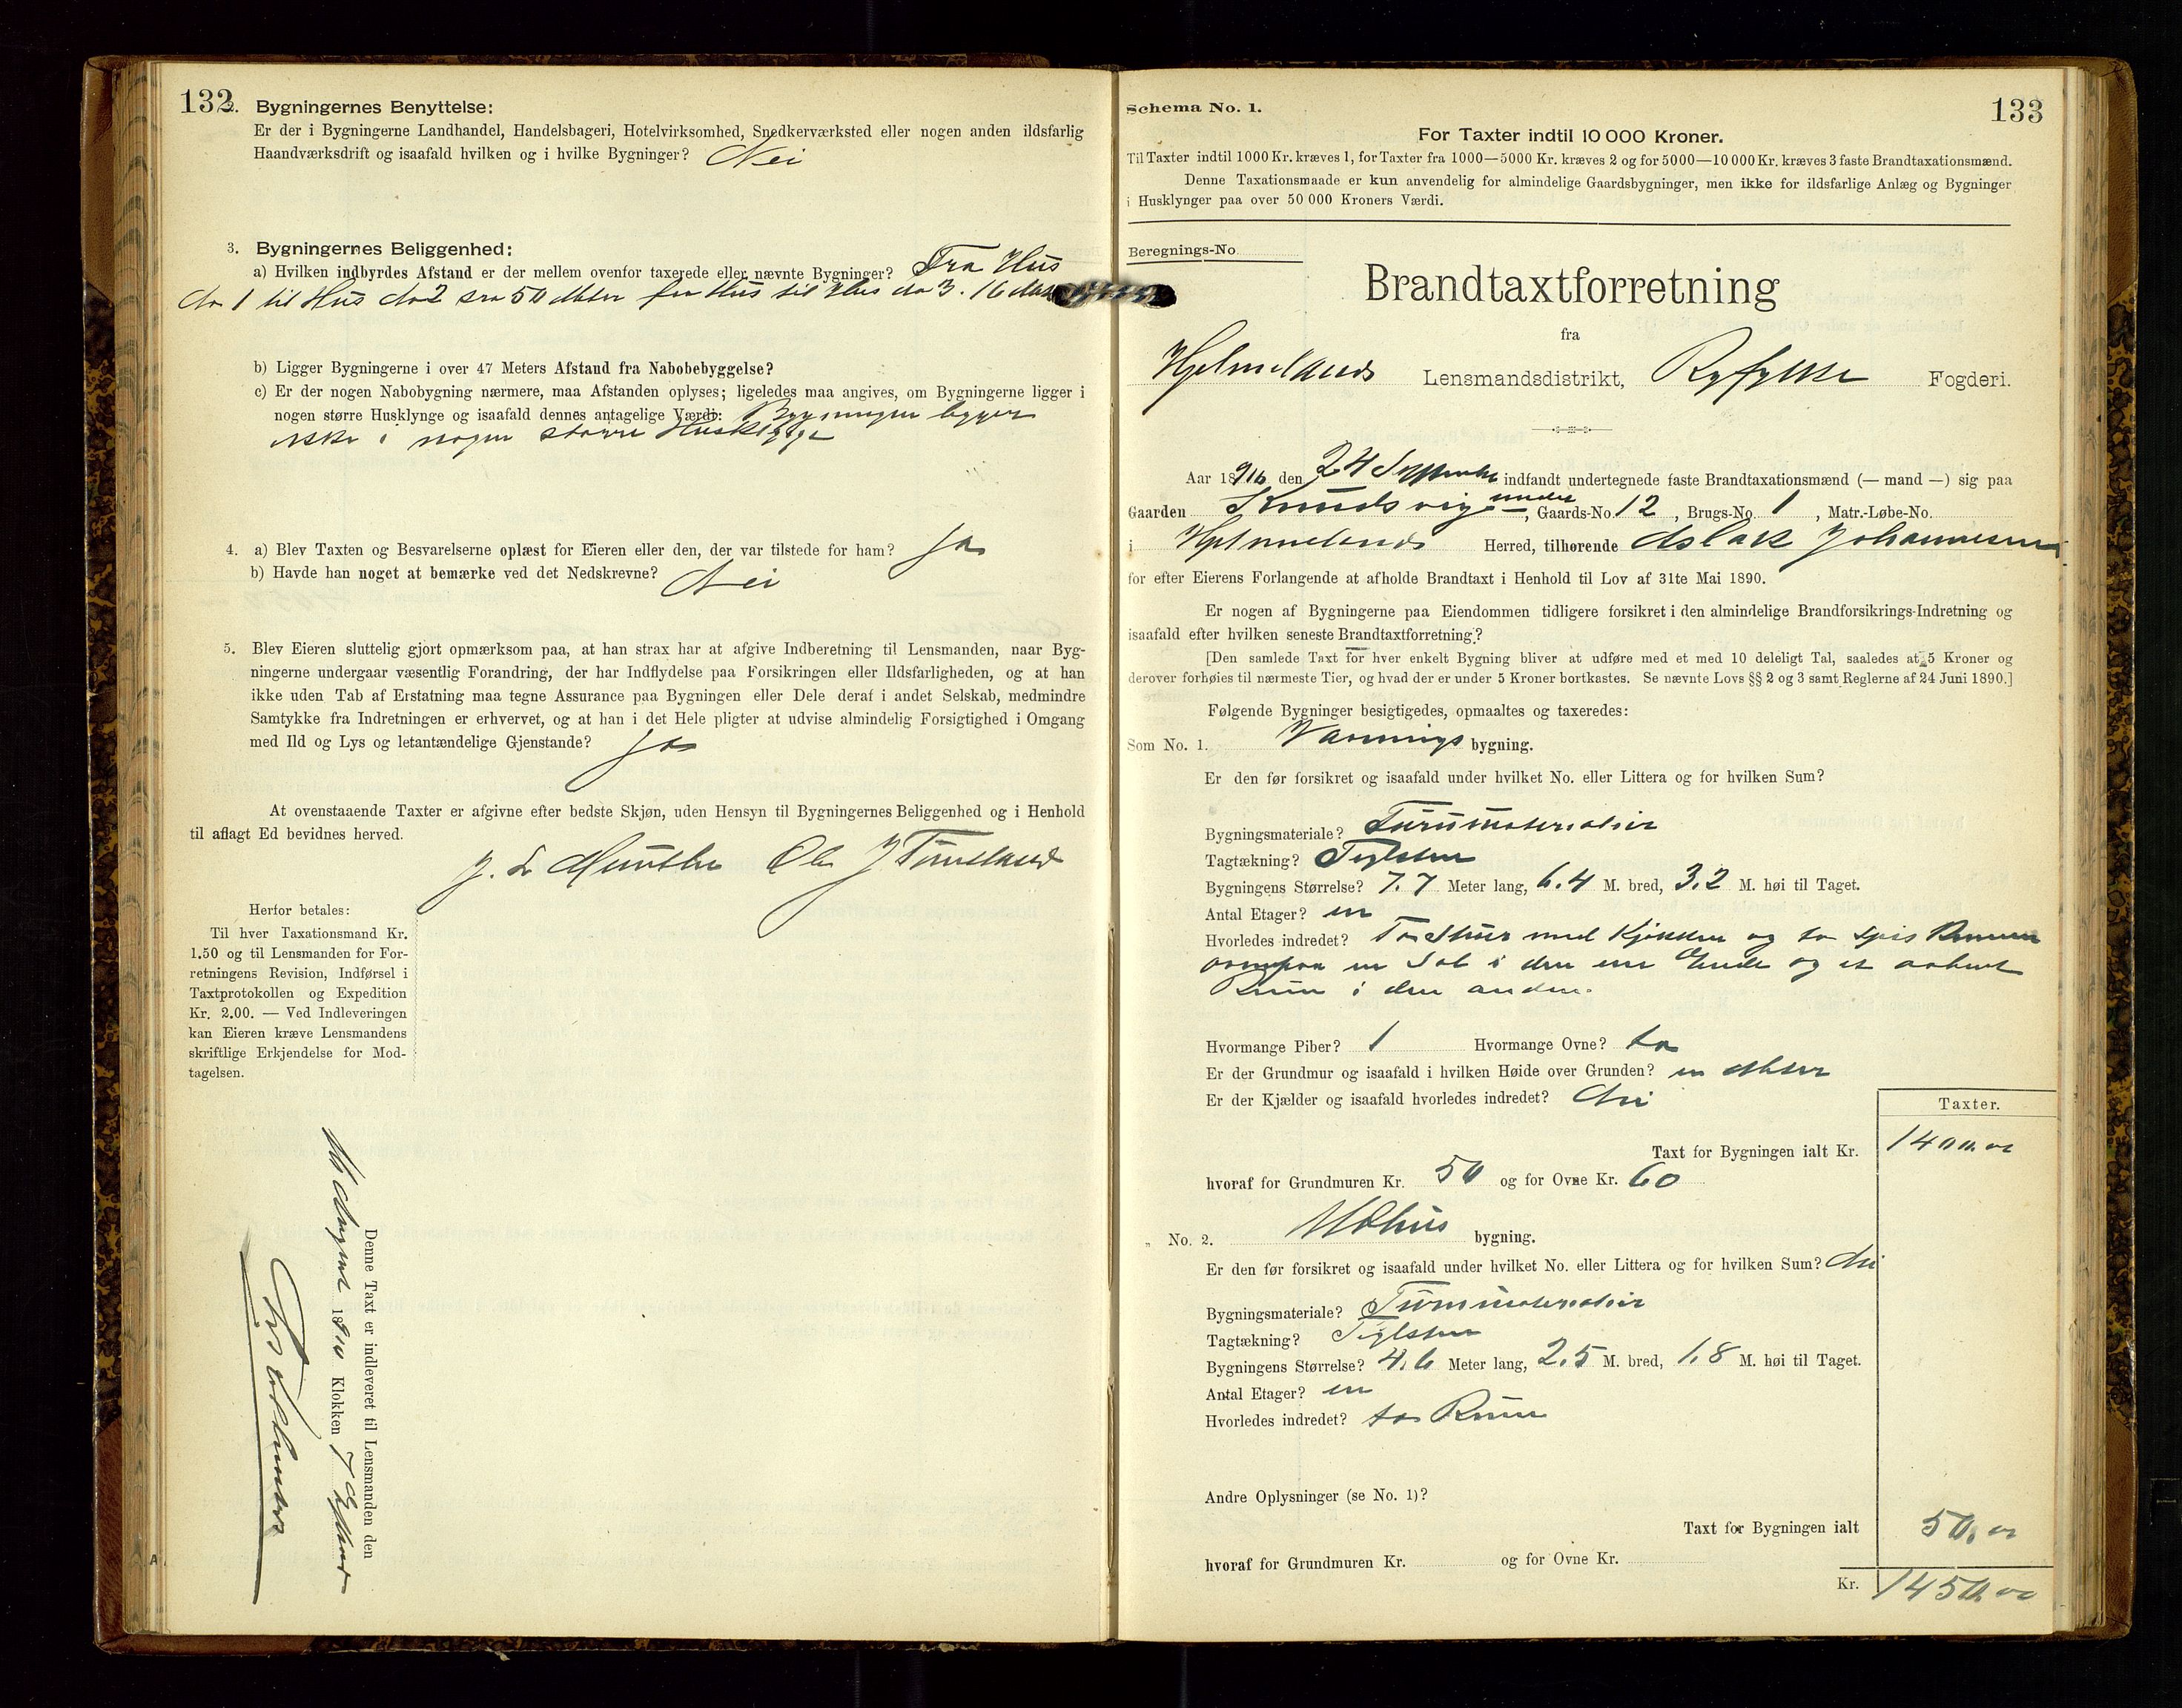 132
2. Bygningernes Benyttelse:
Er der i Bygningerne Landhandel, Handelsbageri, Hotelvirksomhed, Snedkerværksted eller nogen anden ildsfarlig
Haandværksdrift og isaafald hvilken og i hvilke Bygninger? Nei
3. Bygningernes Beliggenhed:
a) Hvilken indbyrdes Afstand er der mellem ovenfor taxerede eller nævnte Bygninger? Fra Hus
No 1 til Hus No 2 50 Meter fra Hus til Hus No 3. 16
b) Ligger Bygningerne i over 47 Meters Afstand fra Nabobebyggelse?
c) Er der nogen Nabobygning nærmere, maa Afstanden oplyses; ligeledes maa angives, om Bygningerne ligger i
nogen større Husklynge og isaafald dennes antagelige Værdi: Bygningen ligger
ikke i nogen større Husklynge
4. a) Blev Taxten og Besvarelserne oplæst for Eieren eller den, der var tilstede for ham? Ja
b) Havde han noget at bemærke ved det Nedskrevne? Nei
5. Blev Eieren sluttelig gjort opmærksom paa, at han strax har at afgive Indberetning til Lensmanden, naar Byg-
ningerne undergaar væsentlig Forandring, der har Indflydelse paa Forsikringen eller Ildsfarligheden, og at han
ikke uden Tab af Erstatning maa tegne Assurance paa Bygningen eller Dele deraf i andet Selskab, medmindre
Samtykke fra Indretningen er erhvervet, og at han i det Hele pligter at udvise almindelig Forsigtighed i Omgang
med Ild og Lys og letantændelige Gjenstande? Ja
At ovenstaaende Taxter er afgivne efter bedste Skjøn, uden Hensyn til Bygningernes Beliggenhed og i Henhold
til aflagt Ed bevidnes herved.
J. L Munthe Ole J
Herfor betales:
Til hver Taxationsmand Kr.
1.50 og til Lensmanden for For-
retningens Revision, Indførsel i
Taxtprotokollen og Expedition
Kr. 2.00. — Ved Indleveringen
kan Eieren kræve Lensmandens
skriftlige Erkjendelse for Mod-
tagelsen.
Denne Taxt er indleveret til Lensmanden den
August 18 Klokken 7
133
Schema No. 1.
For Taxter indtil 10 000 Kroner.
Til Taxter indtil 1000 Kr. kræves 1, for Taxter fra 1000—5000 Kr. kræves 2 og for 5000—10 000 Kr. kræves 3 faste Brandtaxationsmænd.
Denne Taxationsmaade er kun anvendelig for almindelige Gaardsbygninger, men ikke for ildsfarlige Anlæg og Bygninger
i Husklynger paa over 50 000 Kroners Værdi.
Beregnings-No
Brandtaxtforretning
fra
Hjelmelands Lensmandsdistrikt, Ryfylke Fogderi.
Aar 1 den 24 September indfandt undertegnede faste Brandtaxationsmænd (— mand —) sig paa
Gaarden Knudsvig under, Gaards-No. 12, Brugs-No. 1, Matr.-Løbe-No.
i Hjelmelands Herred, tilhørende Aslak Johannesen
for efter Eierens Forlangende at afholde Brandtaxt i Henhold til Lov af 31te Mai 1890.
Er nogen af Bygningerne paa Eiendommen tidligere forsikret i den almindelige Brandforsikrings-Indretning og
isaafald efter hvilken seneste Brandtaxtforretning?
[Den samlede Taxt for hver enkelt Bygning bliver at udføre med et med 10 deleligt Tal, saaledes at 5 Kroner og
derover forhøies til nærmeste Tier, og hvad der er under 5 Kroner bortkastes. Se nævnte Lovs §§ 2 og 3 samt Reglerne af 24 Juni 1890.]
Følgende Bygninger besigtigedes, opmaaltes og taxeredes:
Som No. 1. Vaanings bygning.
Er den før forsikret og isaafald under hvilket No. eller Littera og for hvilken Sum?
Bygningsmateriale? Furumaterialier
Tagtækning? Teglsten
Bygningens Størrelse? 7.7 Meter lang, 6.4 M. bred, 3.2 M. høi til Taget.
Antal Etager? en
Hvorledes indredet? To Stuer med Kjøkken og to
ovenpaa en Sal i den ene Ende og et aabent
Rum i den anden.
Hvormange Piber? 1 Hvormange Ovne? to
Er der Grundmur og isaafald i hvilken Høide over Grunden? en Meter
Er der Kjælder og isaafald hvorledes indredet? Nei
Taxter.
Taxt for Bygningen ialt Kr. 1400.00
hvoraf for Grundmuren Kr. 50 og for Ovne Kr. 60
„ No. 2. Udhus bygning.
Er den før forsikret og isaafald under hvilket No. eller Littera og for hvilken Sum? Nei
Bygningsmateriale? Furumaterialier
Tagtækning? Teglsten
Bygningens Størrelse? 4.6 Meter lang, 2.5 M. bred, 1.8 M. høi til Taget.
Antal Etager? en
Hvorledes indredet? to Rum
Andre Oplysninger (se No. 1)?
Taxt for Bygningen ialt 50.00
hvoraf for Grundmuren Kr. og for Ovne Kr.
Kr. 1450.00